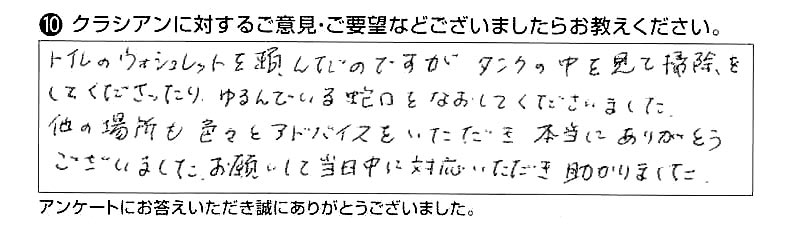 ⑩ クラシアンに対するご意見・ご要望などございましたらお教えください。
トイレのウォシュレットを頼んだのですが タンクの中を見て掃除を
してくださったり、ゆるんでいる蛇口をなおしてくださいました。
他の場所も色々とアドバイスをいただき 本当にありがとう
ございました。お願いして当日中に対応いただき 助かりました。
アンケートにお答えいただき誠にありがとうございました。